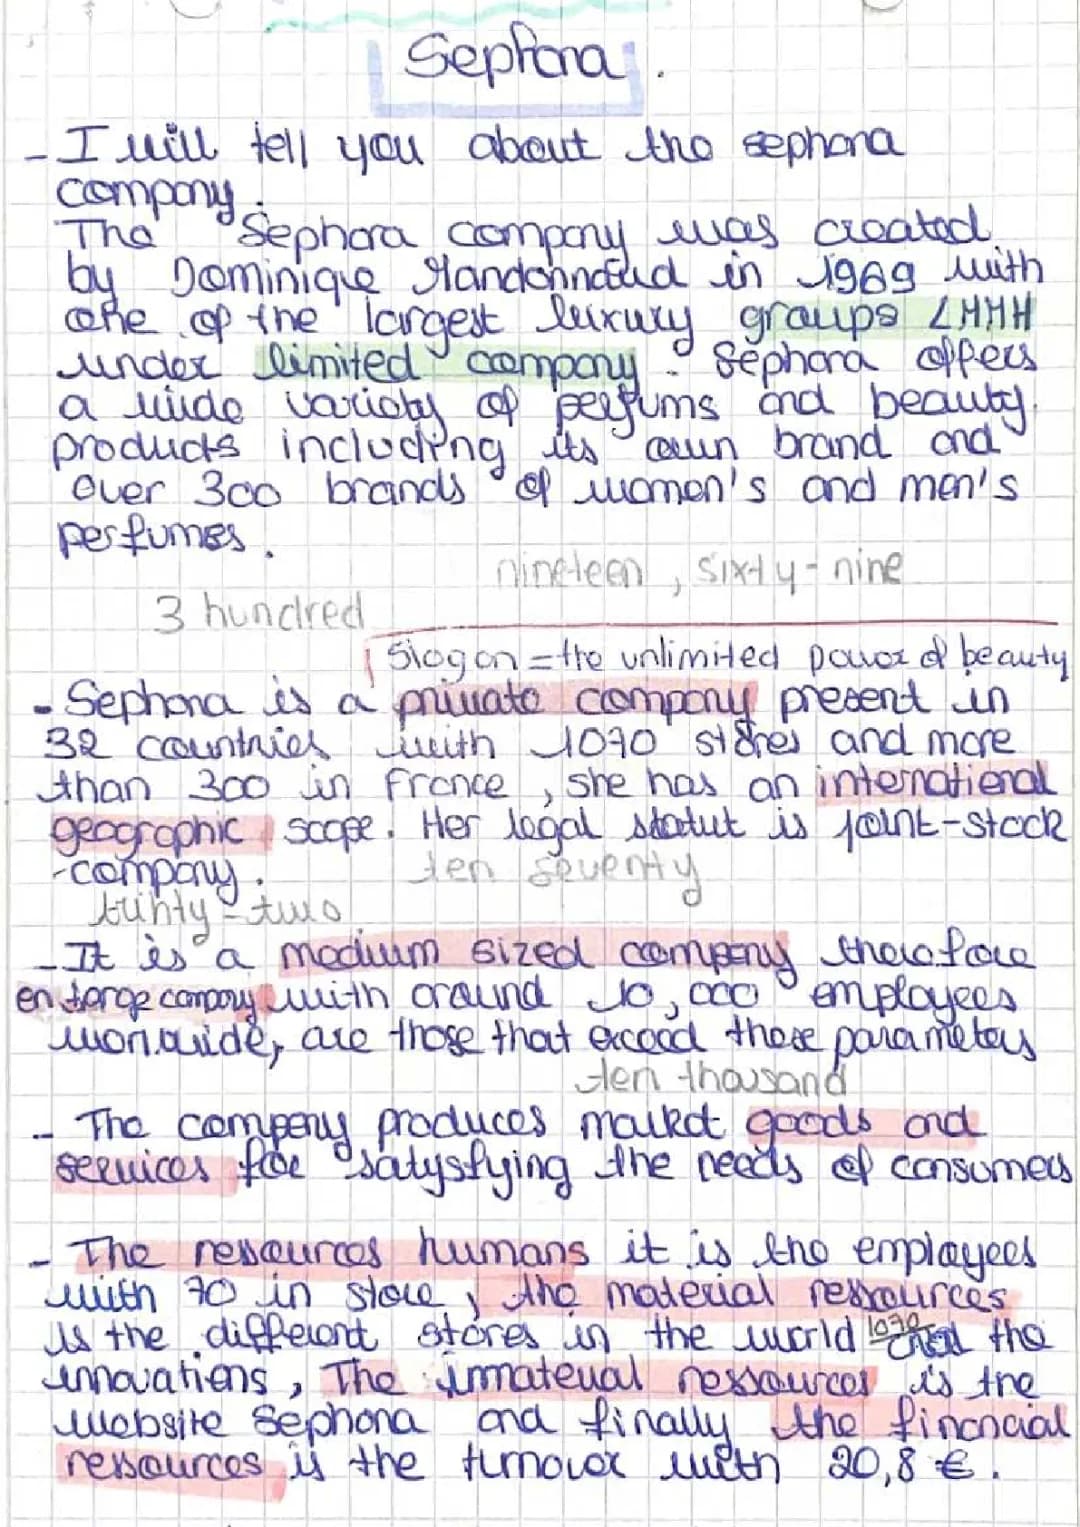 Sephora.
- I will tell you about the sephora
company.
The Sephora company was created
by Dominique Mandonnaud in 1969 with
one of the largest luxury groups LMHH
under limited company. Sephora offers
a wide variety of perfums and beauty
products including its own brand and
over 300 brands of women's and men's
perfumes.
nineteen, sixty-nine
3 hundred
Slogan = the unlimited power of beauty
- Sephora is a private company present in
32 countries with 1070 stores and more
than 300 in France, she has an international
geographic scope. Her legal statut is joint-stock
-company.
ten seventy
thirty-two
- It is a medium sized company therefore
en large compony with around 10,000 employees
worlwide, are those that exceed these parameters
ten thousand
- The company produces market goods and
services for satysfying the needs of consumers
- The ressources humans it is the employees
with 70 in store, the material ressources
is the different stores in the world 1070 and the
innovations, The immaterial ressources is the
website Sephora and finally the financial
ressources is the turnover with 20,8 €.